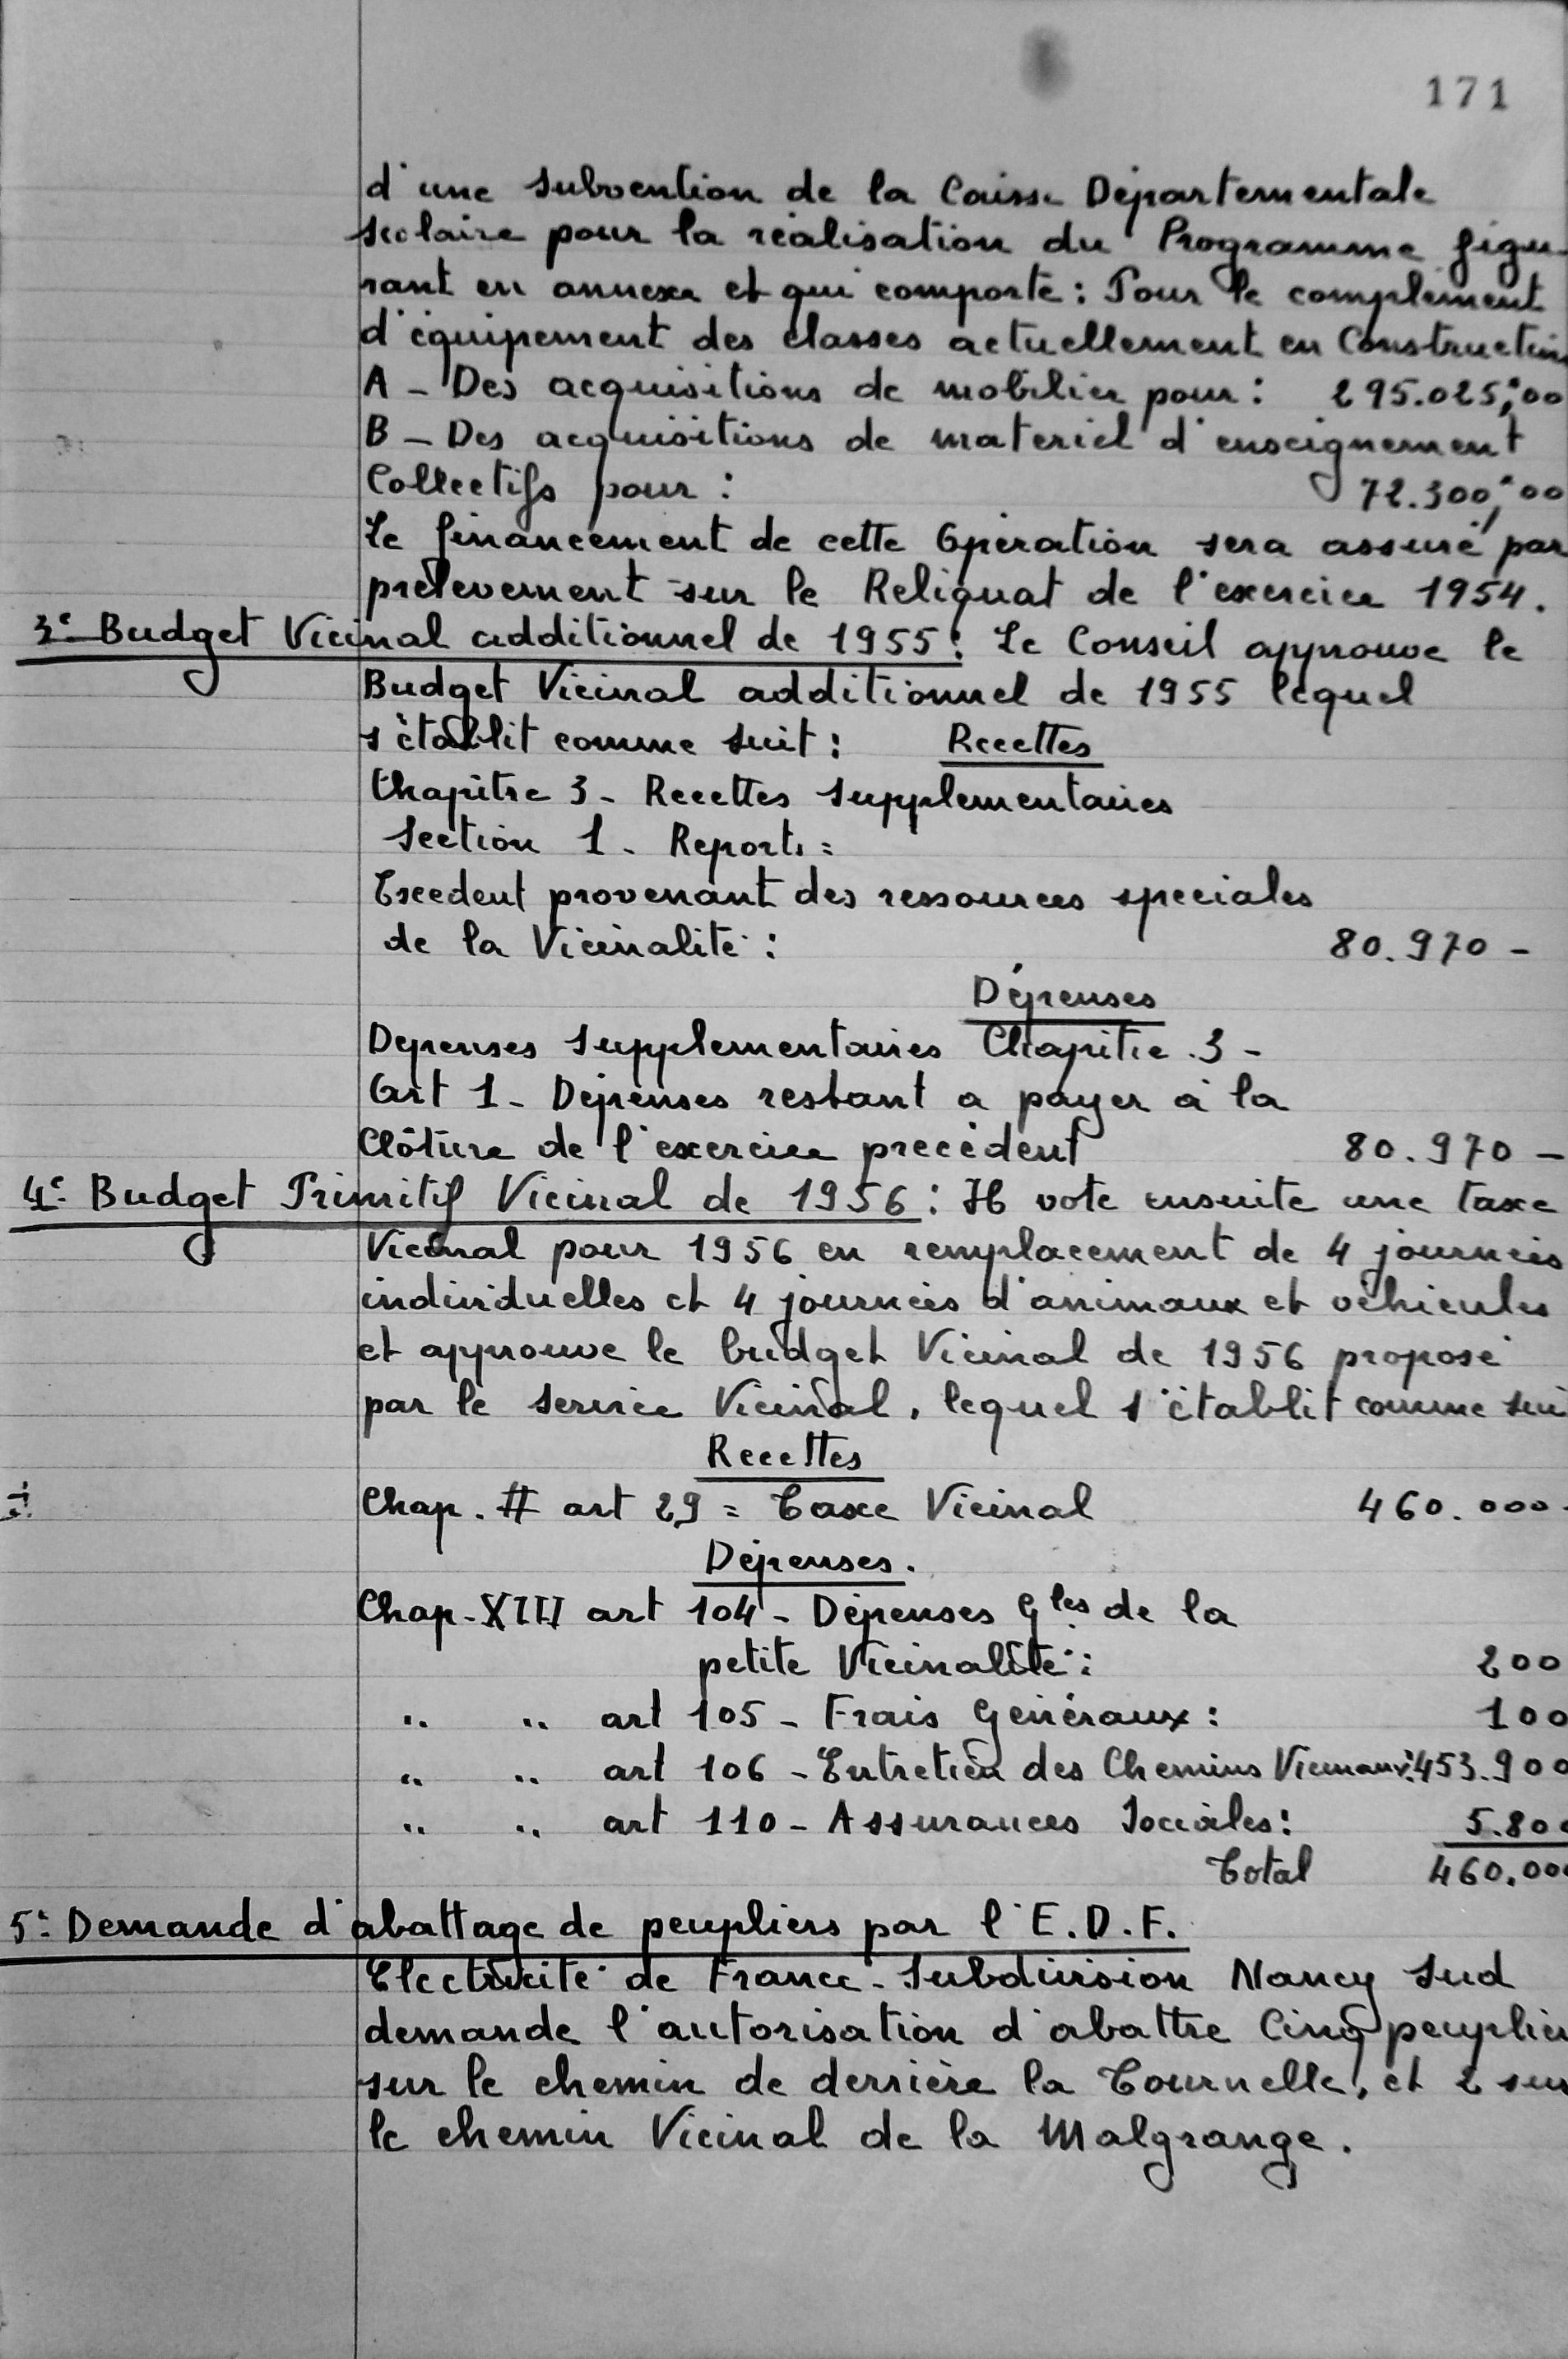 171
d'une subvention de la Caisse Départementale
scolaire pour la réalisation du Programme figu-
rant en annexe et qui comporte : Pour le complément
d'équipement des classes actuellement en Construction
A - Des acquisitions de mobilier pour : 295.025,00
B - Des acquisitions de matériel d'enseignement
Collectifs pour : 72.300,00
Le financement de cette Opération sera assuré par
prélèvement sur le Reliquat de l'exercice 1954.
3° Budget Vicinal additionnel de 1955 : Le Conseil approuve le
Budget Vicinal additionnel de 1955 lequel
s'établit comme suit : Recettes
Chapitre 3 - Recettes supplementaires
Section 1 - Reports =
Excedent provenant des ressources speciales
de la Vicinalité : 80.970 -
Dépenses
Depenses supplementaires Chapitre .3 -
Art 1 - Dépenses restant a payer à la
Clôture de l'exercice precédent 80.970 -
4° Budget Primitif Vicinal de 1956 : Il vote ensuite une taxe
Vicinal pour 1956 en remplacement de 4 journées
individuelles et 4 journées d'animaux et véhicules
et approuve le budget Vicinal de 1956 proposé
par le service Vicinal, lequel s'établit comme sui
Recettes
Chap. art 29 = Taxe Vicinal 460.000-
Dépenses.
Chap - XIII art 104 - Dépenses Gles de la
petite Vicinalité : 200
" " art 105 - Frais Généraux : 100
" " art 106 - Entretien des Chemins Vicinaux : 453.900
" " art 110 - Assurances Sociales : 5.800
Total 460.000
5° Demande d'abattage de peupliers par l'E.D.F.
Electricité de France - Subdivision Nancy Sud
demande l'autorisation d'abattre Cinq peuplier
sur le chemin de derrière la Tournelle, et 2 sur
le chemin Vicinal de la Malgrange.